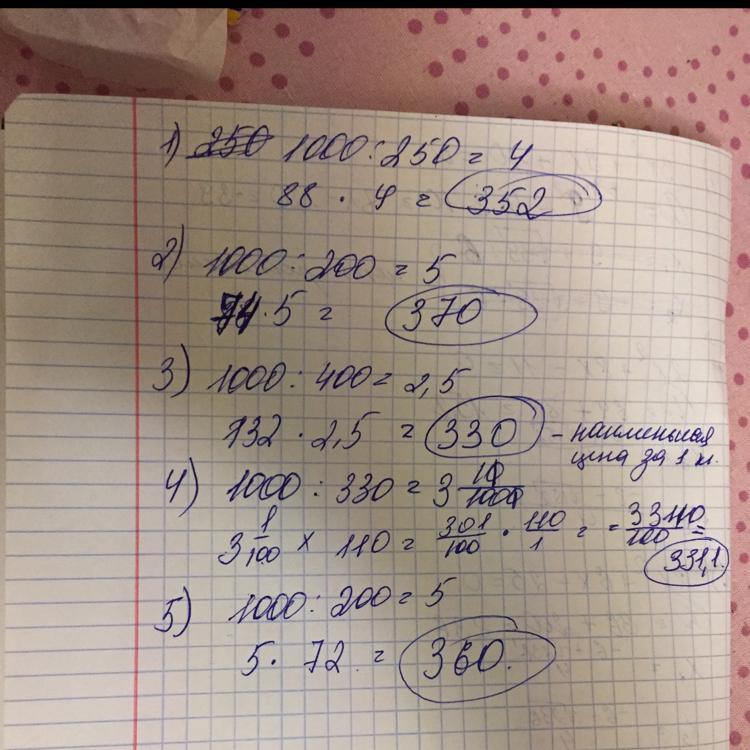 1) 250 1000 : 250 = 4
88 · 4 = 352
2) 1000 : 200 = 5
74 · 5 = 370
3) 1000 : 400 = 2,5
132 · 2,5 = 330 – наименьшая
цена за 1 кг.
4) 1000 : 330 = 3 10/1000
3 1/100 x 110 = 301/100 · 110/1 = = 33110/100 =
331,1.
5) 1000 : 200 = 5
5 · 72 = 360.